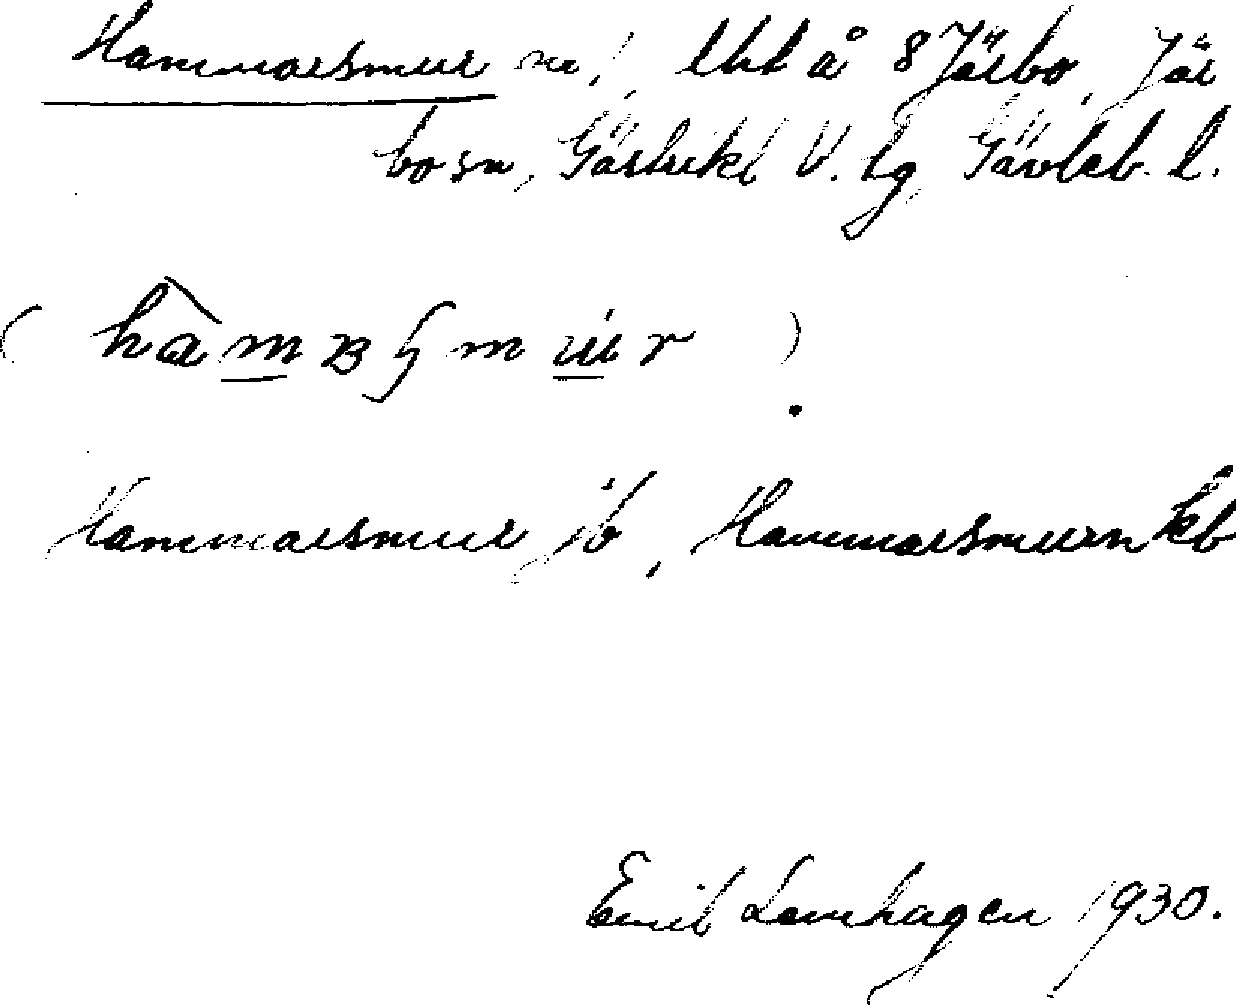 Hammarsmur m, lht å 8 Järbo, Jär
bo sn, Gästrikl V. tg, Gävleb. l.
Hammarsmur jb, Hammarsmurn kb
Emil Lenhagen 1930.